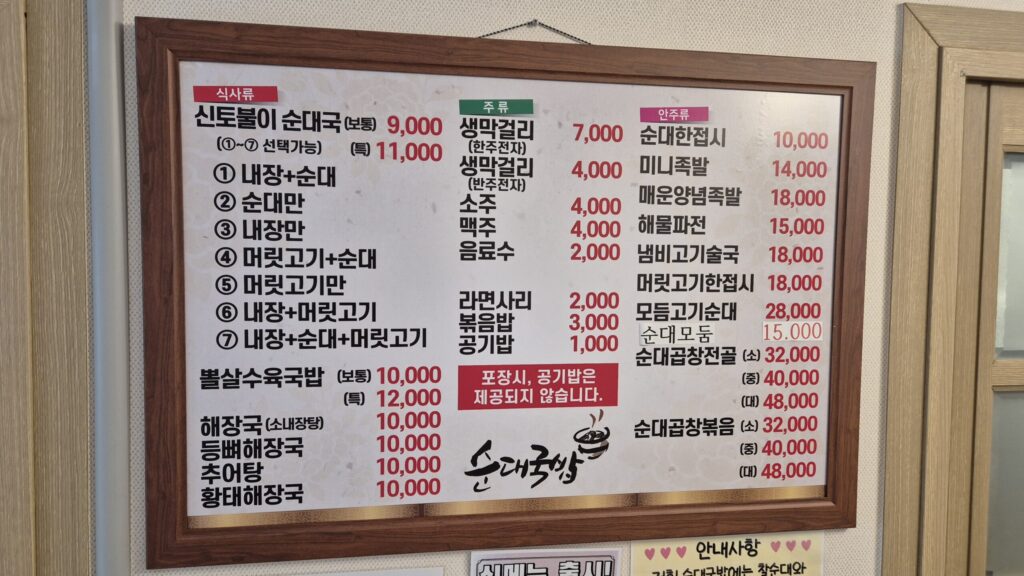 식사류
신토불이 순대국 (보통) 9,000
(①~⑦ 선택가능) (특) 11,000
① 내장+순대
② 순대만
③ 내장만
④ 머릿고기+순대
⑤ 머릿고기만
⑥ 내장+머릿고기
⑦ 내장+순대+머릿고기
뽈살수육국밥 (보통) 10,000
(특) 12,000
해장국 (소내장탕) 10,000
등뼈해장국 10,000
추어탕 10,000
황태해장국 10,000
주류
생막걸리 7,000
(한주전자)
생막걸리 4,000
(반주전자)
소주 4,000
맥주 4,000
음료수 2,000
라면사리 2,000
볶음밥 3,000
공기밥 1,000
포장시, 공기밥은
제공되지 않습니다.
순대국밥
안주류
순대한접시 10,000
미니족발 14,000
매운양념족발 18,000
해물파전 15,000
냄비고기술국 18,000
머릿고기한접시 18,000
모듬고기순대 28,000
순대모둠 15.000
순대곱창전골 (소) 32,000
(중) 40,000
(대) 48,000
순대곱창볶음 (소) 32,000
(중) 40,000
(대) 48,000
신메뉴 출시!
안내사항
순대국밥에는 찰순대와